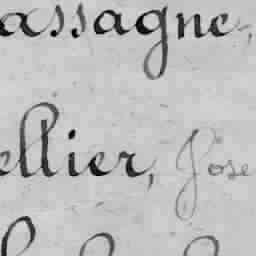 assagne,
ellier, Jose